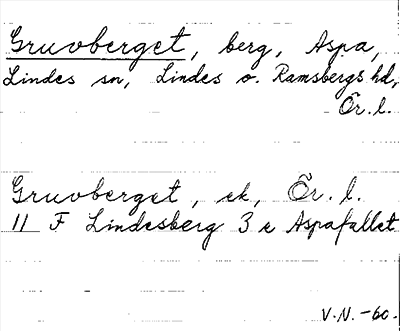 Gruvberget, berg, Aspa,
Lindes sn, Lindes o. Ramsbergs hd,
Ör. l.
Gruvberget, ek, Ör. l.
11 F Lindesberg 3 e Aspafallet
V.N. -60.